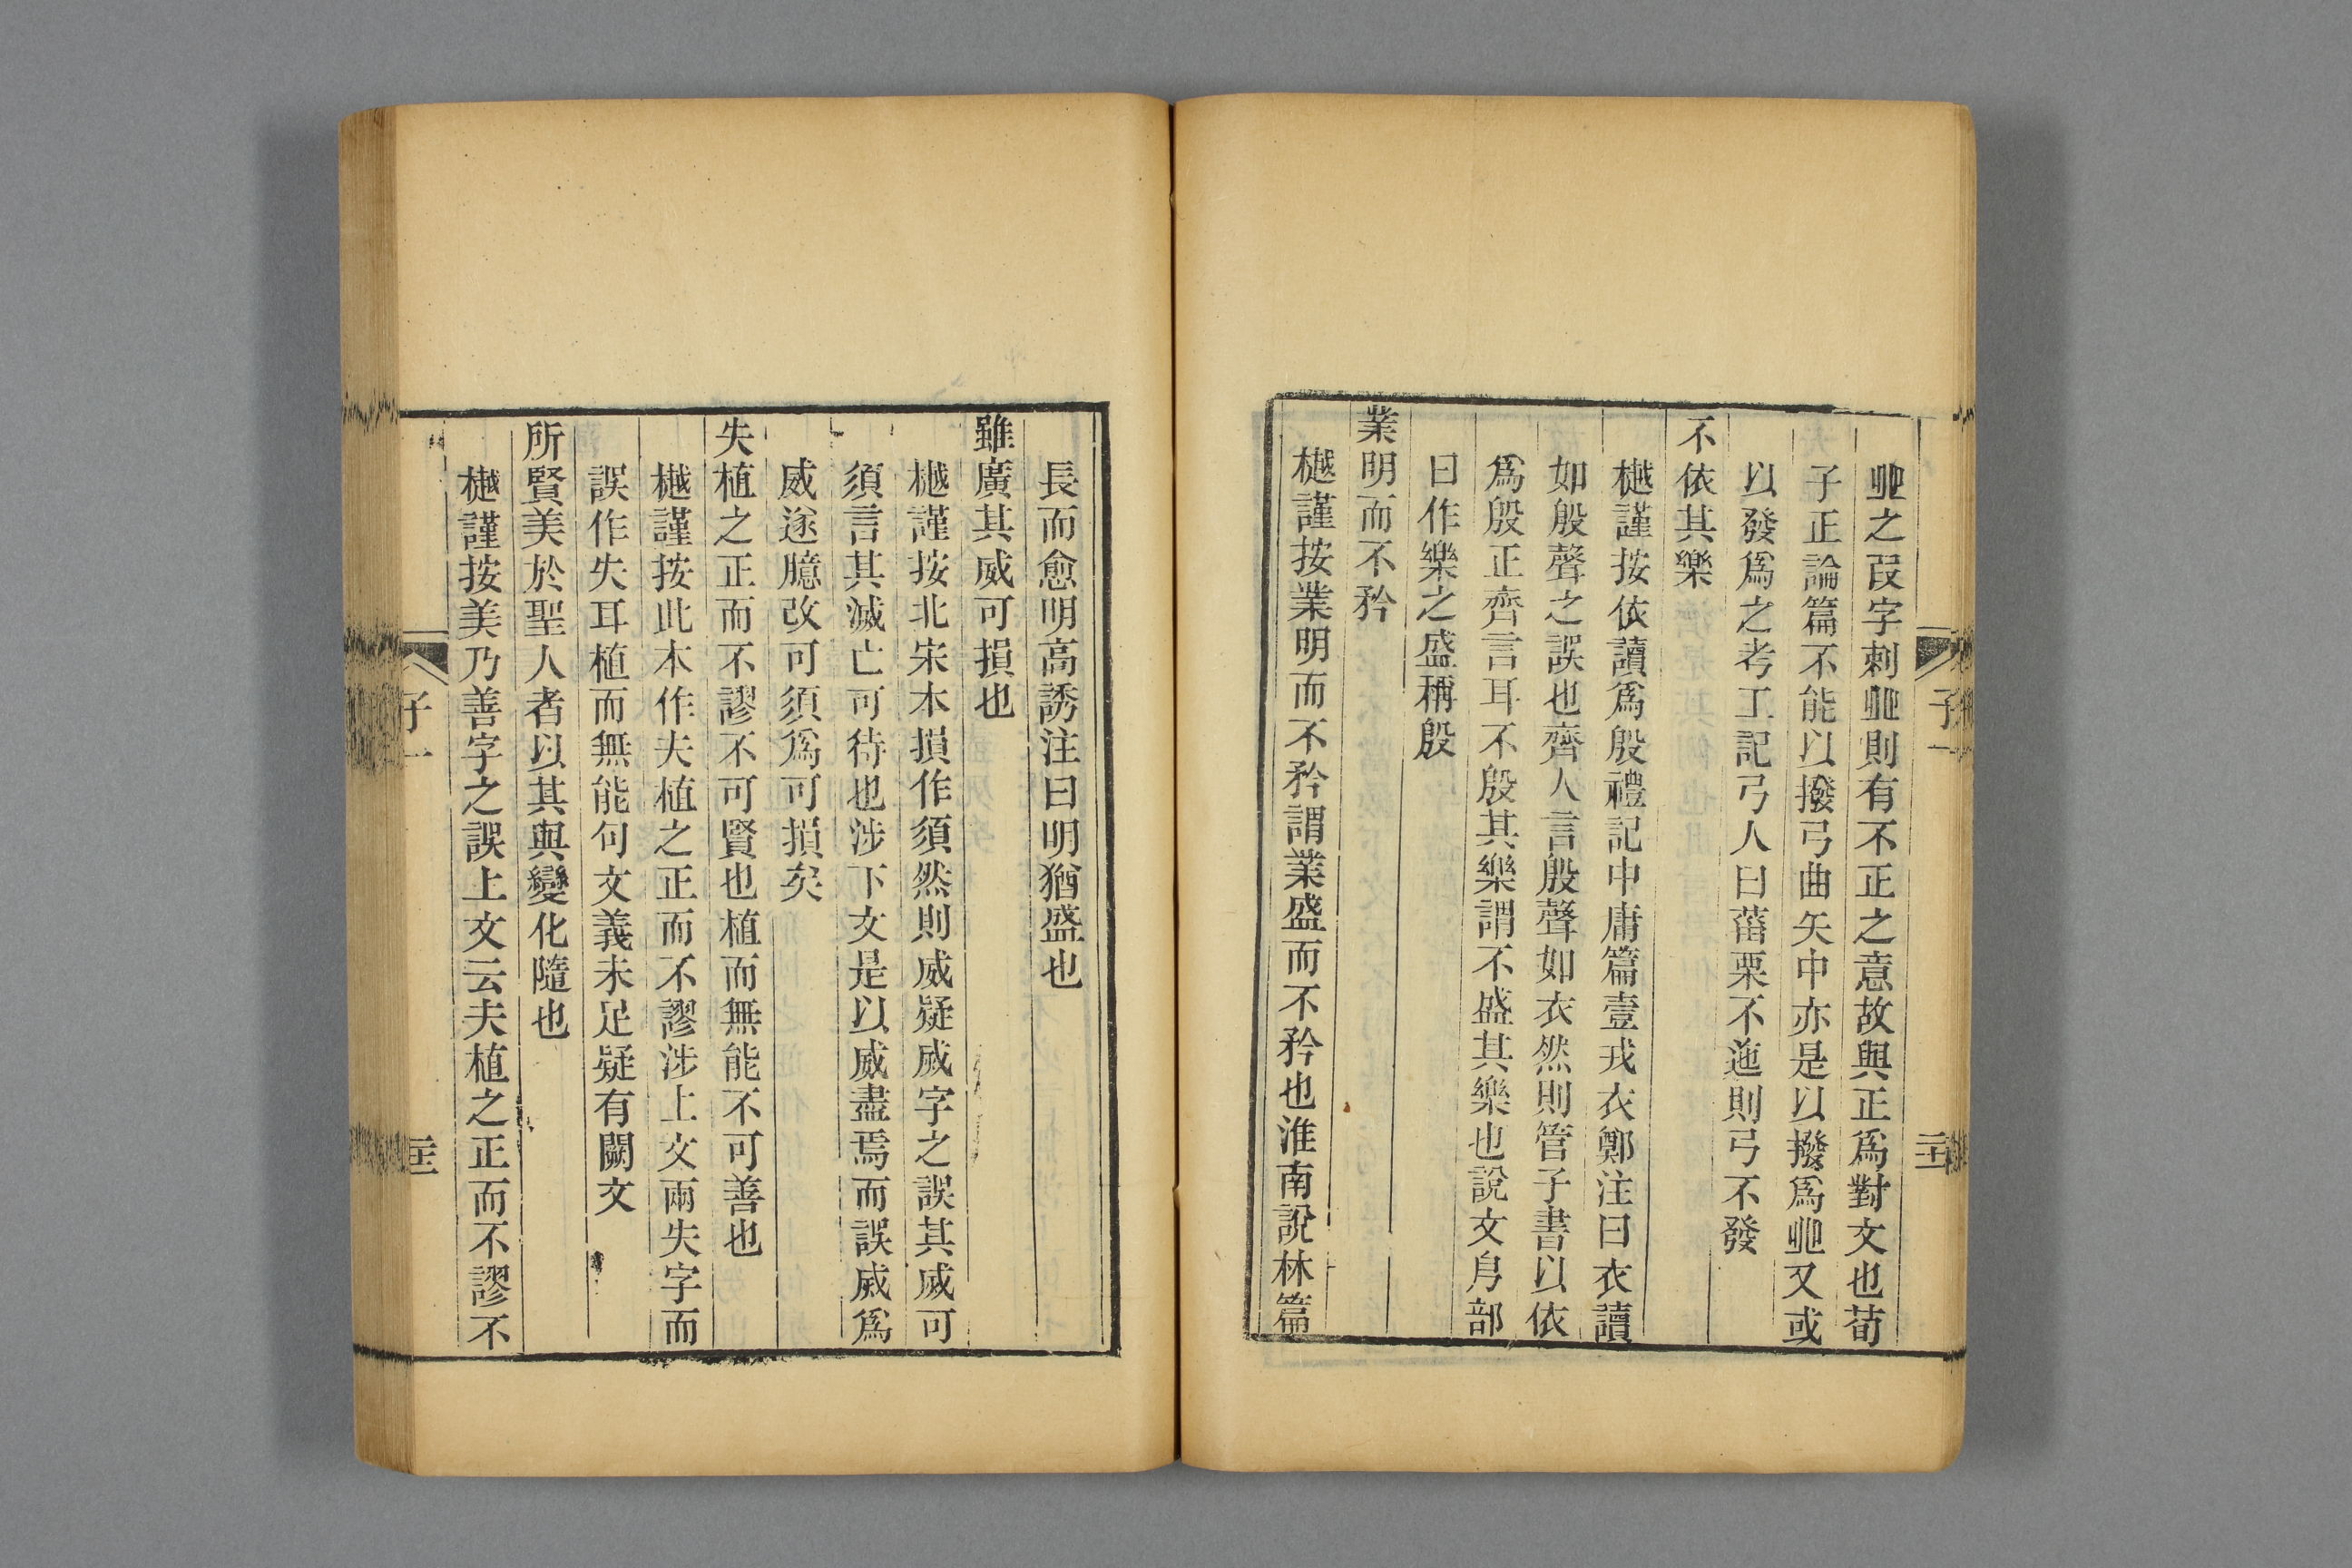 𧿁之叚字刺𧿁則有不正之意故與正爲對文也荀
子正論篇不能以撥弓曲矢中亦是以撥爲𧿁又或
以發爲之考工記弓人曰菑栗不迤則弓不發
不依其樂
樾謹按依讀爲殷禮記中庸篇壹戎衣鄭注曰衣讀
如殷聲之誤也齊人言殷聲如衣然則管子書以依
爲殷正齊言耳不殷其樂謂不盛其樂也說文㐆部
曰作樂之盛稱殷
業明而不矜
樾謹按業明而不矜謂業盛而不矜也淮南說林篇
長而愈明高誘注曰明猶盛也
雖廣其威可損也
樾謹按北宋本損作須然則威疑烕字之誤其烕可
須言其滅亡可待也涉下文是以威盡焉而誤烕爲
威遂臆改可須爲可損矣
失植之正而不謬不可賢也植而無能不可善也
樾謹按此本作夫植之正而不謬涉上文兩失字而
誤作失耳植而無能句文義未足疑有闕文
所賢美於聖人者以其與變化隨也
樾謹按美乃善字之誤上文云夫植之正而不謬不
子一